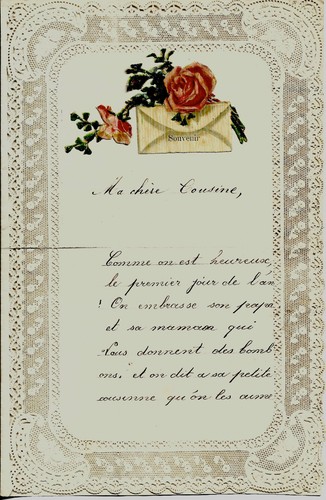 Souvenir
Ma chère Cousine,
Comme on est heureux,
le premier jour de l'an
! On embrasse son papa
et sa maman qui
Vous donnent des bomb
ons, et on dit a sa petite
cousinne qu'ón les aime